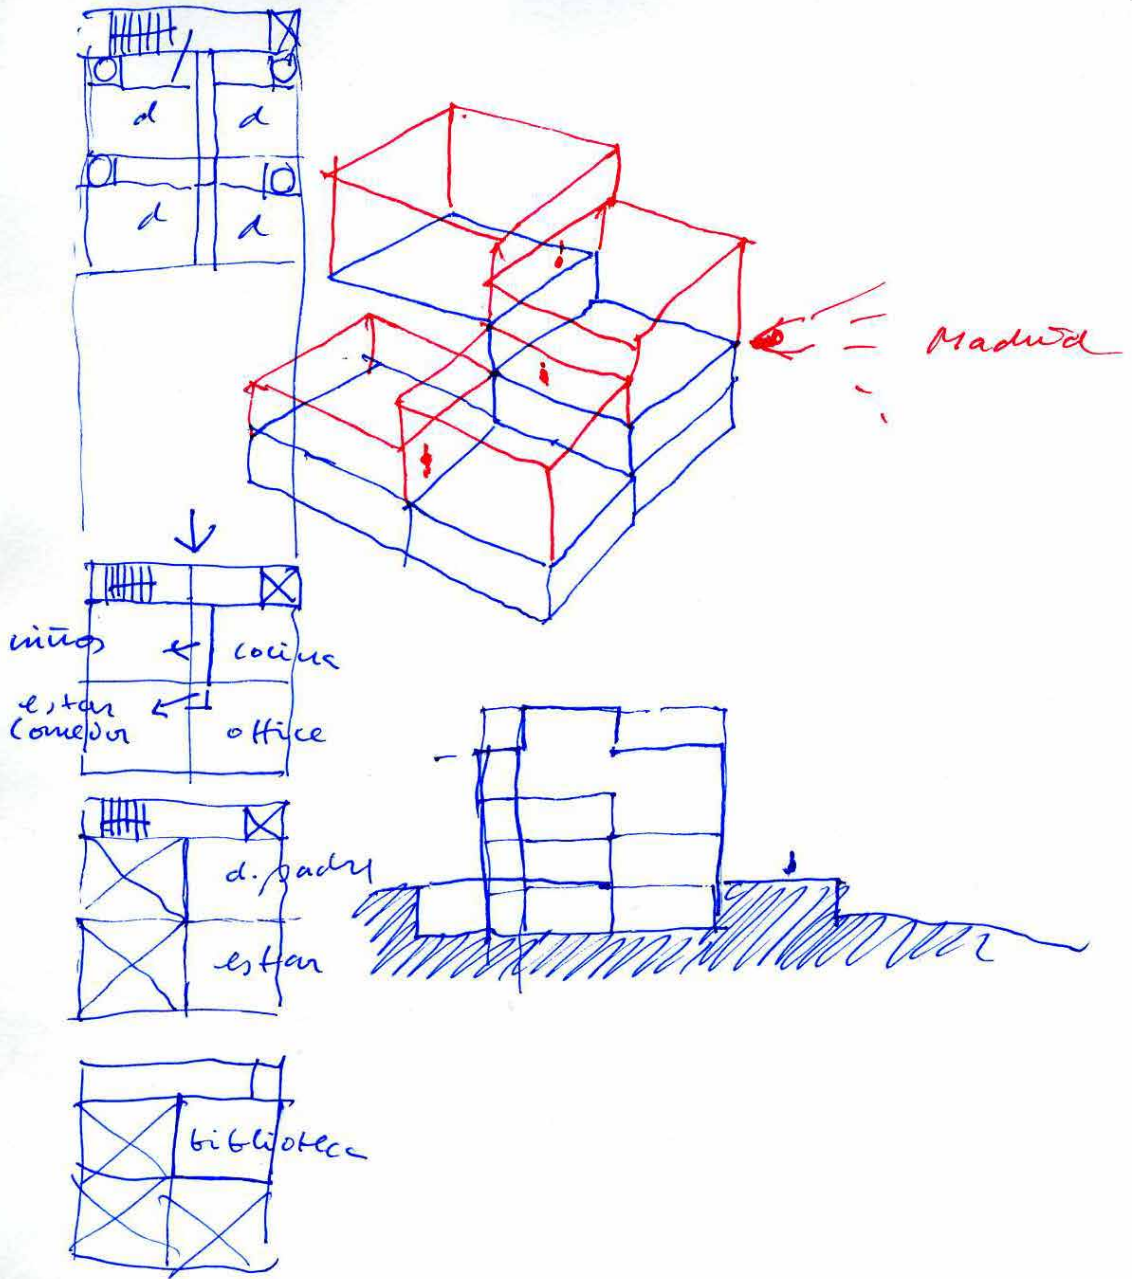 d d
d d
Madrid
niños
cocina
estar
comedor
office
d. padres
estar
biblioteca